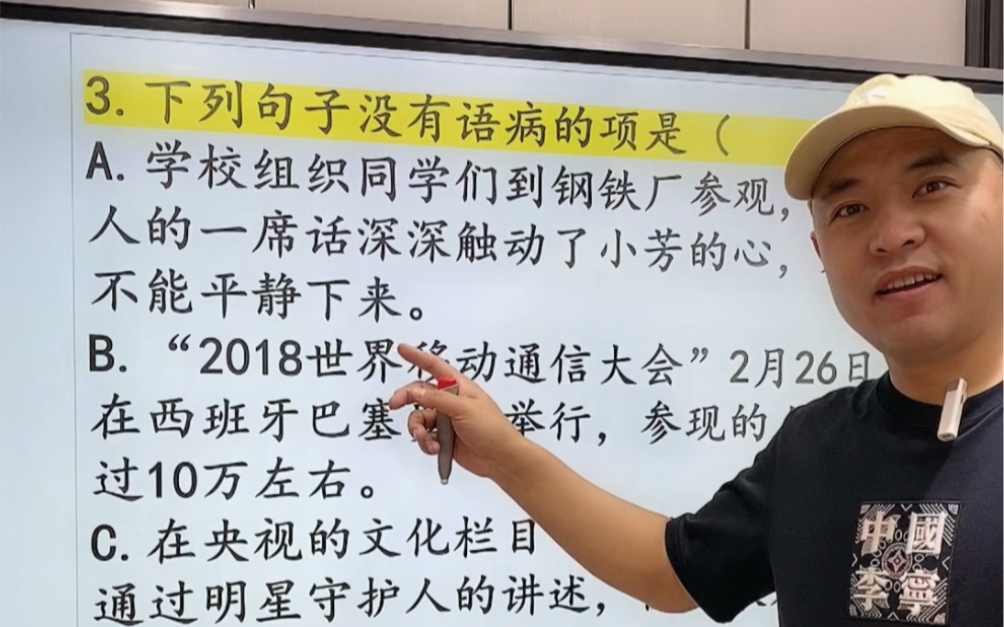 3. 下列句子没有语病的项是（
A. 学校组织同学们到钢铁厂参观，
人的一席话深深触动了小芳的心，
不能平静下来。
B. “2018世界移动通信大会”2月26日
在西班牙巴塞 举行，参现的
过10万左右。
C. 在央视的文化栏目
通过明星守护人的讲述，
中國
李寧